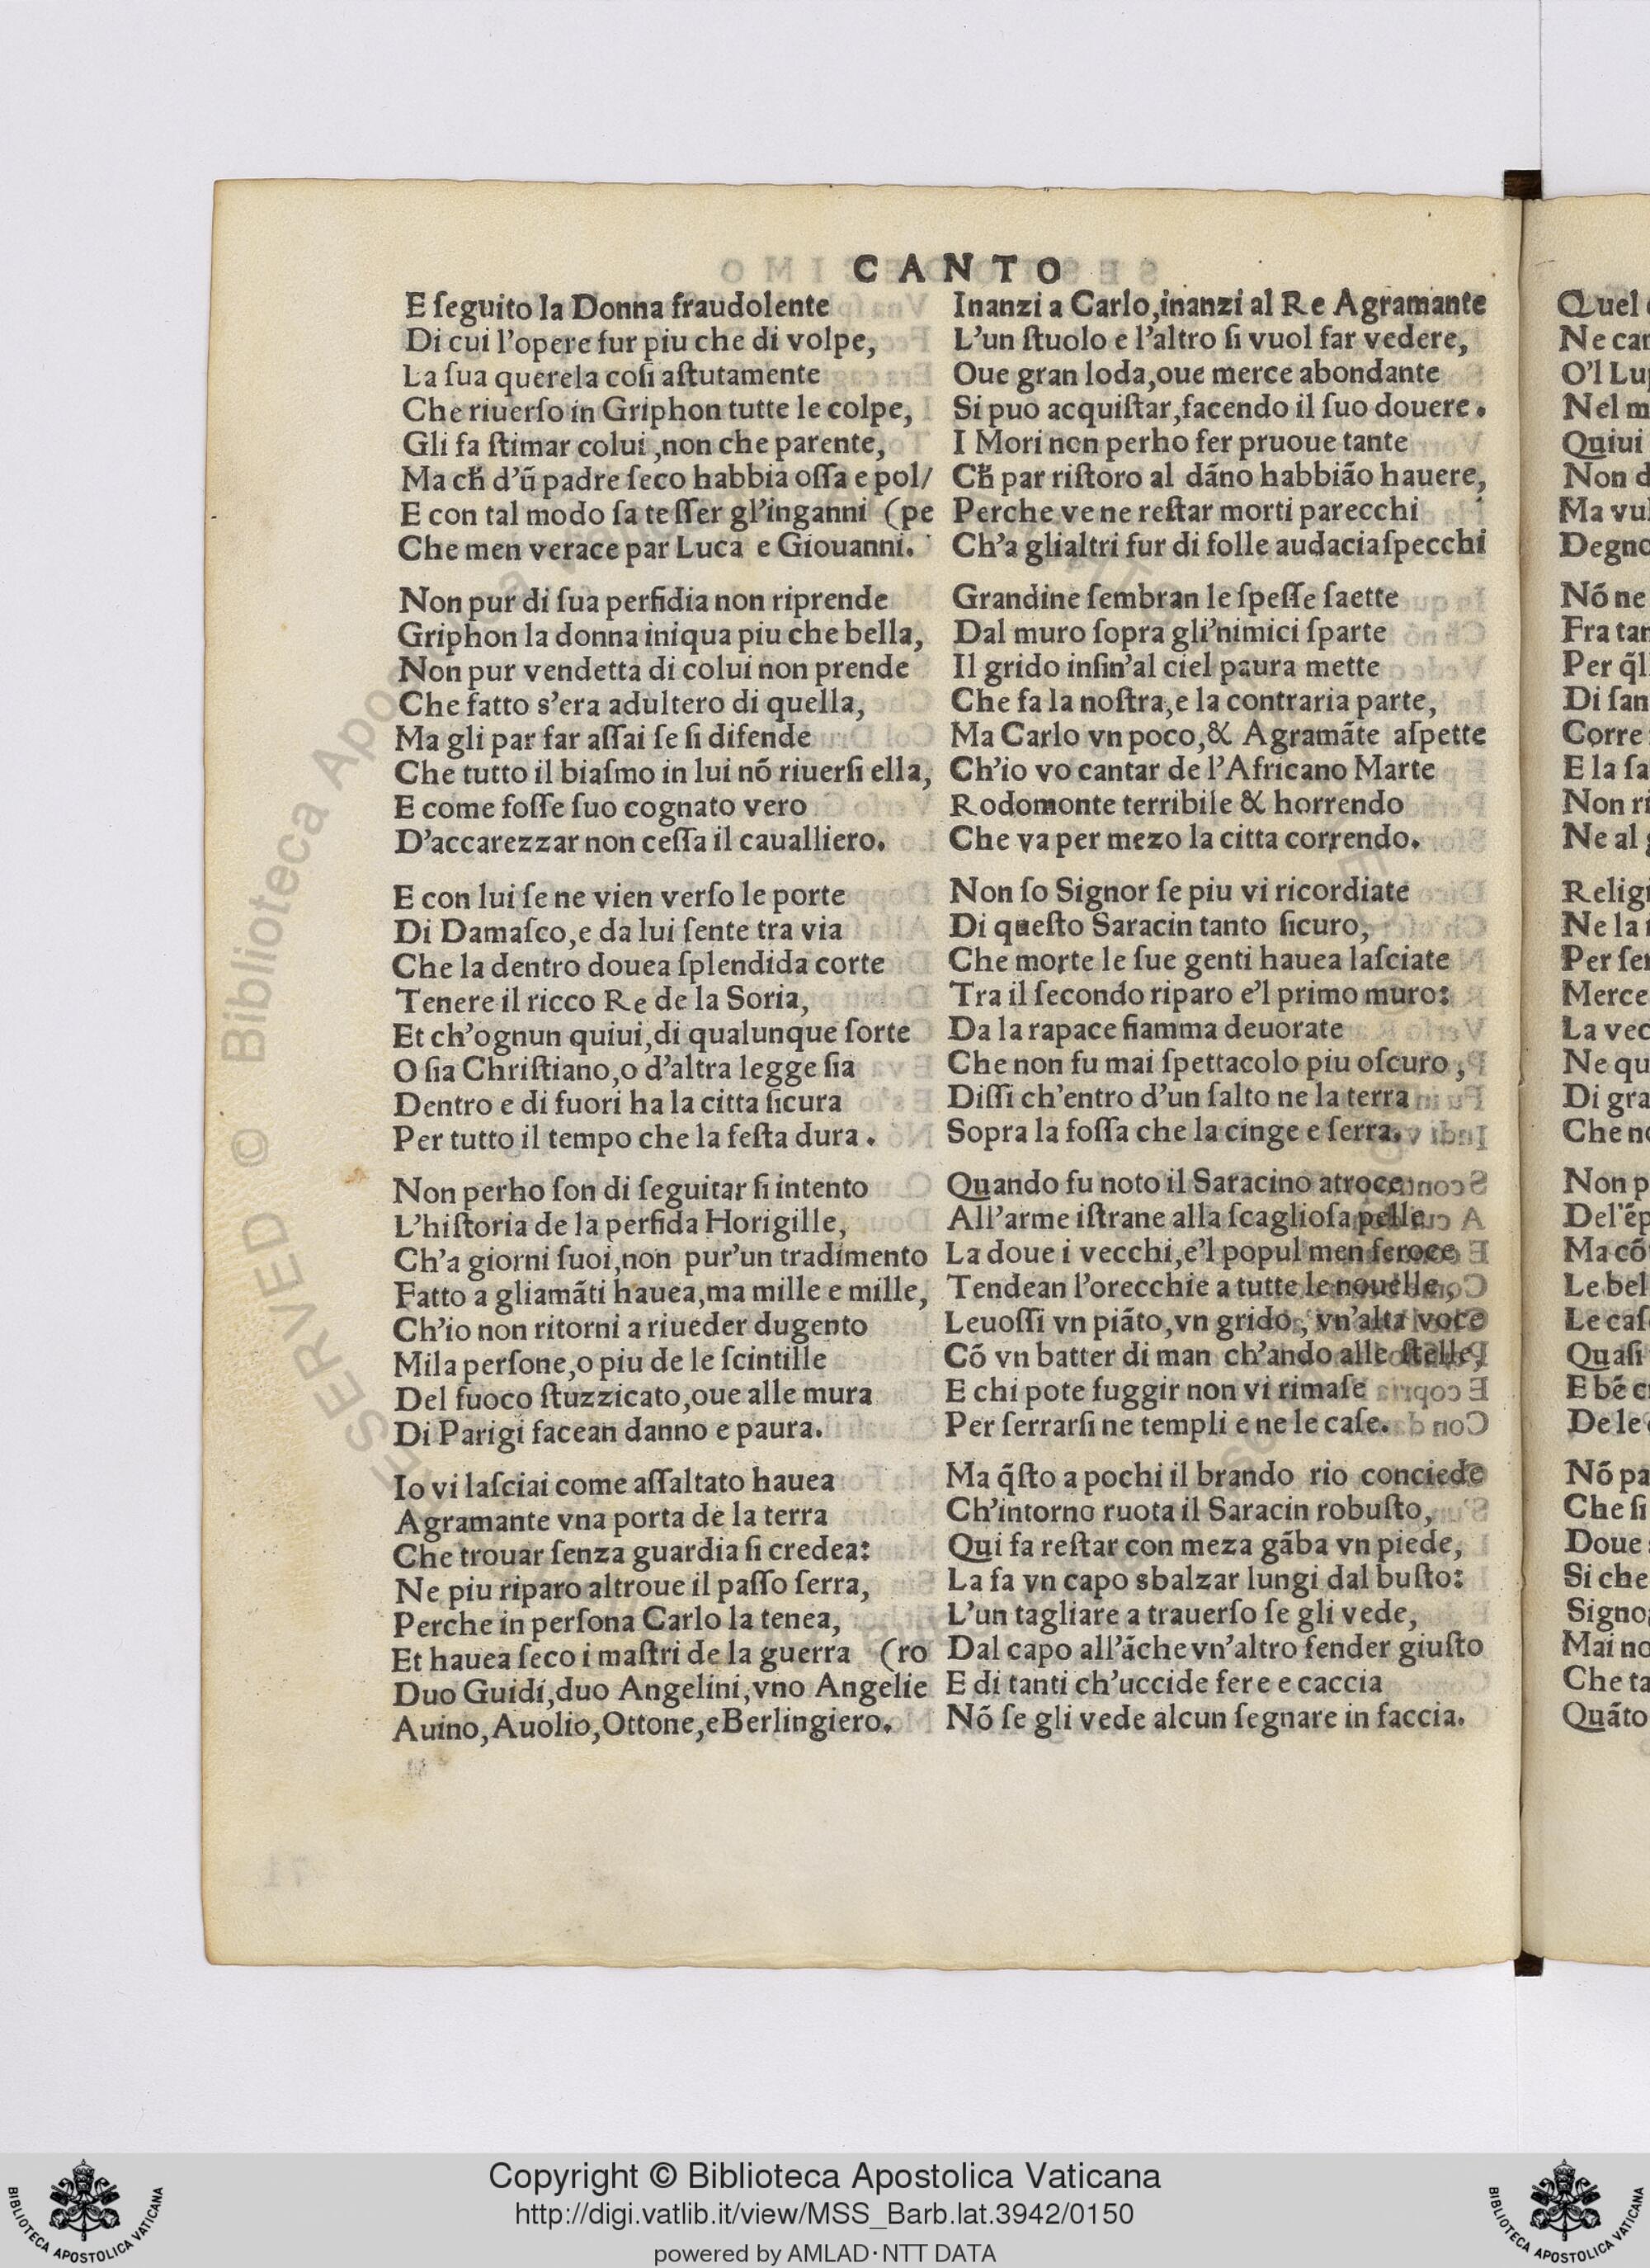 CANTO
E ſeguito la Donna fraudolente
Di cui l'opere fur piu che di volpe,
La ſua querela coſi aſtutamente
Che riuerſo in Griphon tutte le colpe,
Gli fa ſtimar colui,non che parente,
Ma ch̃ d'ũ padre ſeco habbia oſſa e pol/
E con tal modo ſa teſſer gl'inganni (pe
Che men verace par Luca e Giouanni.
Non pur di ſua perfidia non riprende
Griphon la donna iniqua piu che bella,
Non pur vendetta di colui non prende
Che fatto s'era adultero di quella,
Ma gli par far aſſai ſe ſi difende
Che tutto il biaſmo in lui nõ riuerſi ella,
E come foſſe ſuo cognato vero
D'accarezzar non ceſſa il caualliero.
E con lui ſe ne vien verſo le porte
Di Damaſco,e da lui ſente tra via
Che la dentro douea ſplendida corte
Tenere il ricco Re de la Soria,
Et ch'ognun quiui,di qualunque ſorte
O ſia Chriſtiano,o d'altra legge ſia
Dentro e di fuori ha la citta ſicura
Per tutto il tempo che la feſta dura.
Non perho ſon di ſeguitar ſi intento
L'hiſtoria de la perfida Horigille,
Ch'a giorni ſuoi,non pur'un tradimento
Fatto a gliamãti hauea,ma mille e mille,
Ch'io non ritorni a riueder dugento
Mila perſone,o piu de le ſcintille
Del fuoco ſtuzzicato,oue alle mura
Di Parigi facean danno e paura.
Io vi laſciai come aſſaltato hauea
Agramante vna porta de la terra
Che trouar ſenza guardia ſi credea:
Ne piu riparo altroue il paſſo ſerra,
Perche in perſona Carlo la tenea,
Et hauea ſeco i maſtri de la guerra (ro
Duo Guidi,duo Angelini,vno Angelie
Auino,Auolio,Ottone,e Berlingiero.
Inanzi a Carlo,inanzi al Re Agramante
L'un ſtuolo e l'altro ſi vuol far vedere,
Oue gran loda,oue merce abondante
Si puo acquiſtar,facendo il ſuo douere.
I Mori non perho fer pruoue tante
Ch̃ par riſtoro al dãno habbião hauere,
Perche ve ne reſtar morti parecchi
Ch'a glialtri fur di folle audacia ſpecchi
Grandine ſembran le ſpeſſe ſaette
Dal muro ſopra gli'nimici ſparte
Il grido inſin'al ciel paura mette
Che fa la noſtra,e la contraria parte,
Ma Carlo vn poco,& Agramãte aſpette
Ch'io vo cantar de l'Africano Marte
Rodomonte terribile & horrendo
Che va per mezo la citta correndo.
Non ſo Signor ſe piu vi ricordiate
Di queſto Saracin tanto ſicuro,
Che morte le ſue genti hauea laſciate
Tra il ſecondo riparo e'l primo muro:
Da la rapace fiamma deuorate
Che non fu mai ſpettacolo piu oſcuro,
Diſſi ch'entro d'un ſalto ne la terra
Sopra la foſſa che la cinge e ſerra.
Quando fu noto il Saracino atroce
All'arme iſtrane alla ſcaglioſa pelle
La doue i vecchi,e'l popul men feroce
Tendean l'orecchie a tutte le nouelle,
Leuoſſi vn piãto,vn grido, vn'alta voce
Cõ vn batter di man ch'ando alle ſtelle,
E chi pote fuggir non vi rimaſe
Per ſerrarſi ne templi e ne le caſe.
Ma q̃ſto a pochi il brando rio conciede
Ch'intorno ruota il Saracin robuſto,
Qui fa reſtar con meza gãba vn piede,
La fa vn capo sbalzar lungi dal buſto:
L'un tagliare a trauerſo ſe gli vede,
Dal capo all'ãche vn'altro fender giuſto
E di tanti ch'uccide fere e caccia
Nõ ſe gli vede alcun ſegnare in faccia.
Quel
Ne
O'l
Nel
Quiui
Non
Ma
Nõ ne
Fra
Per
Di
Corre
E la
Non
Ne al
Ne la
Per
Merce
La
Ne
Di
Che
Non
Ma
Le
Le
Quaſi
E bẽ
De le
Nõ
Che ſi
Doue
Si che
Mai
Che
Copyright © Biblioteca Apostolica Vaticana
http://digi.vatlib.it/view/MSS_Barb.lat.3942/0150
powered by AMLAD·NTT DATA
BIBLIOTECA APOSTOLICA VATICANA
BIBLIOTECA APOSTOLICA VATICANA